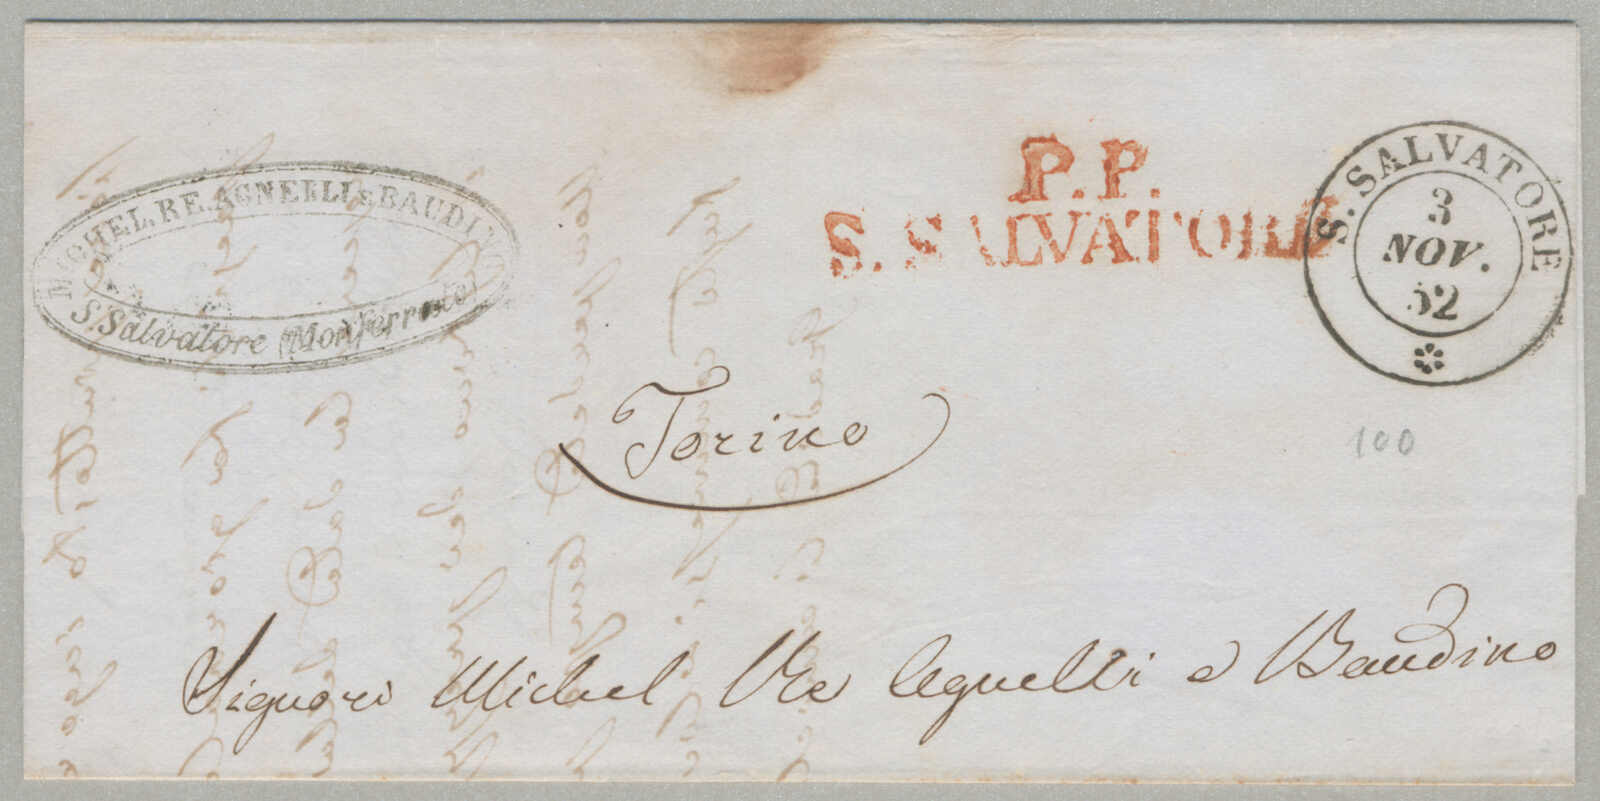 MICHEL RE. AGNELLI E BAUDINO
S. Salvatore (Monferrato)
P.P.
S. SALVATORE
S. SALVATORE
3
NOV.
52
Torino
100
Signori Michel Re Agnelli e Baudino